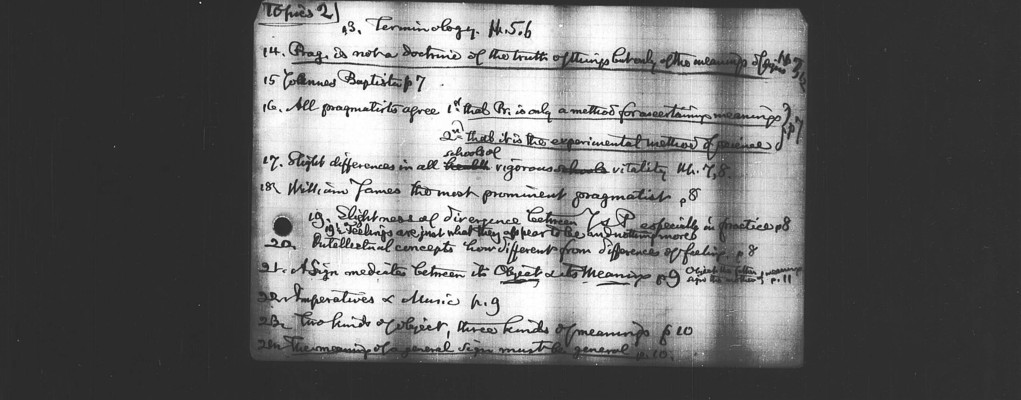 Topics 2]
13. Terminology. pp. 5.6
14. Prag. is not a doctrine of the truth of things but only of the meanings of signs
15 Johannes Baptista p 7
16. All pragmatists agree 1st that Pr. is only a method for ascertaining meanings } p 7
2nd that it is the experimental method of science
17. Slight differences in all schools of vigorous vitality pp. 7, 8.
18. William James the most prominent pragmatist p 8
19. Slightness of divergence between J & P especially in practice p 8
19½ Feelings are just what they appear to be and nothing more
20. Intellectual concepts how different from differences of feeling. p. 8
21. A Sign mediates between its Object & its Meaning p. 9 Object the father sign the mother of meaning p. 11
22. Imperatives & Music p. 9
23. Two kinds of object, three kinds of meanings p 10
24. The meaning of a general sign must be general p. 10.